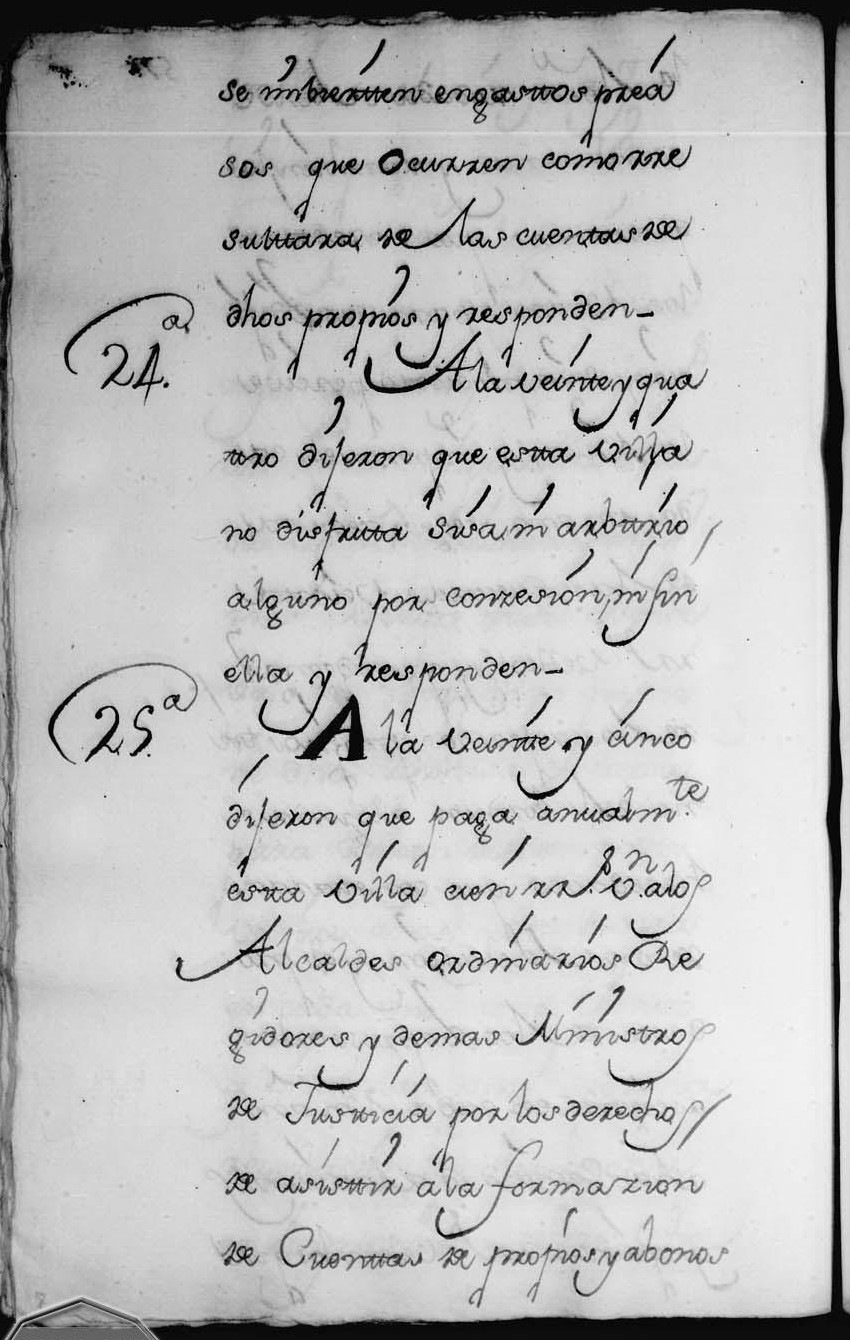 se imbiertten en gasttos preci
sos que ocurren como rre
sulttara de las cuentas de
dhos propios y responden_
24.a
A la veinte y qua
ttro dijeron que estta villa
no disfrutta sisa, ni arbittrio
alguno por conzesion, ni sin
ella y responden_
25.a
A la veintte y cinco
dijeron que paga anualm.te
estta villa cien rr.s v.n a los
Alcaldes ordinarios Re
gidores y demas Ministros
de Justticia por los derechos
de asisttir a la formazion
de Cuenttas de propios y abonos